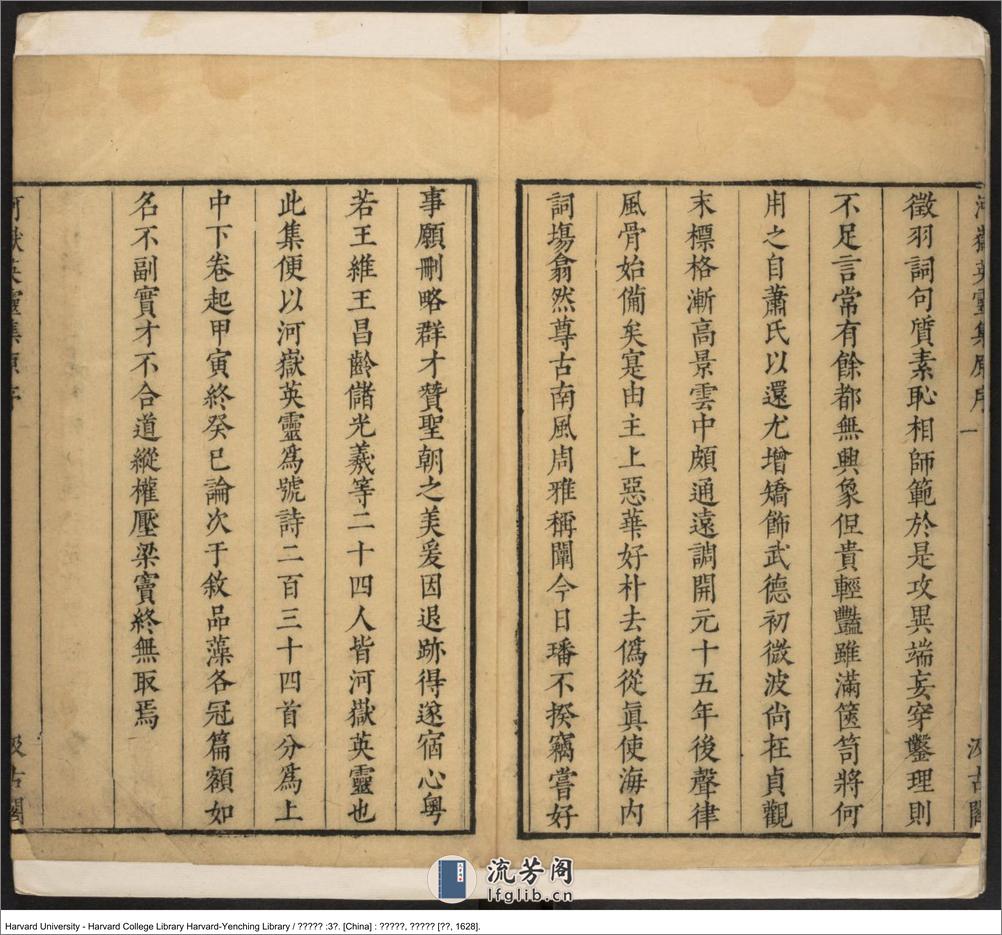 河嶽英靈集原序 一 汲古閣
徵羽詞句質素恥相師範於是攻異端妄穿鑿理則
不足言常有餘都無興象但貴輕豔雖滿篋笥將何
用之自蕭氏以還尤增矯飾武德初微波尚在貞觀
末標格漸高景雲中頗通遠調開元十五年後聲律
風骨始備矣寔由主上惡華好朴去僞從眞使海內
詞塲翕然尊古南風周雅稱闡今日璠不揆竊嘗好
事願刪略群才贊聖朝之美爰因退跡得遂宿心粤
若王維王昌齡儲光羲等二十四人皆河嶽英靈也
此集便以河嶽英靈爲號詩二百三十四首分爲上
中下卷起甲寅終癸巳論次于敘品藻各冠篇額如
名不副實才不合道縱權壓梁竇終無取焉
河嶽英靈集原序 汲古閣
流芳阁
lfglib.cn
Harvard University - Harvard College Library Harvard-Yenching Library / ????? :3?. [China] : ?????, ????? [??, 1628].